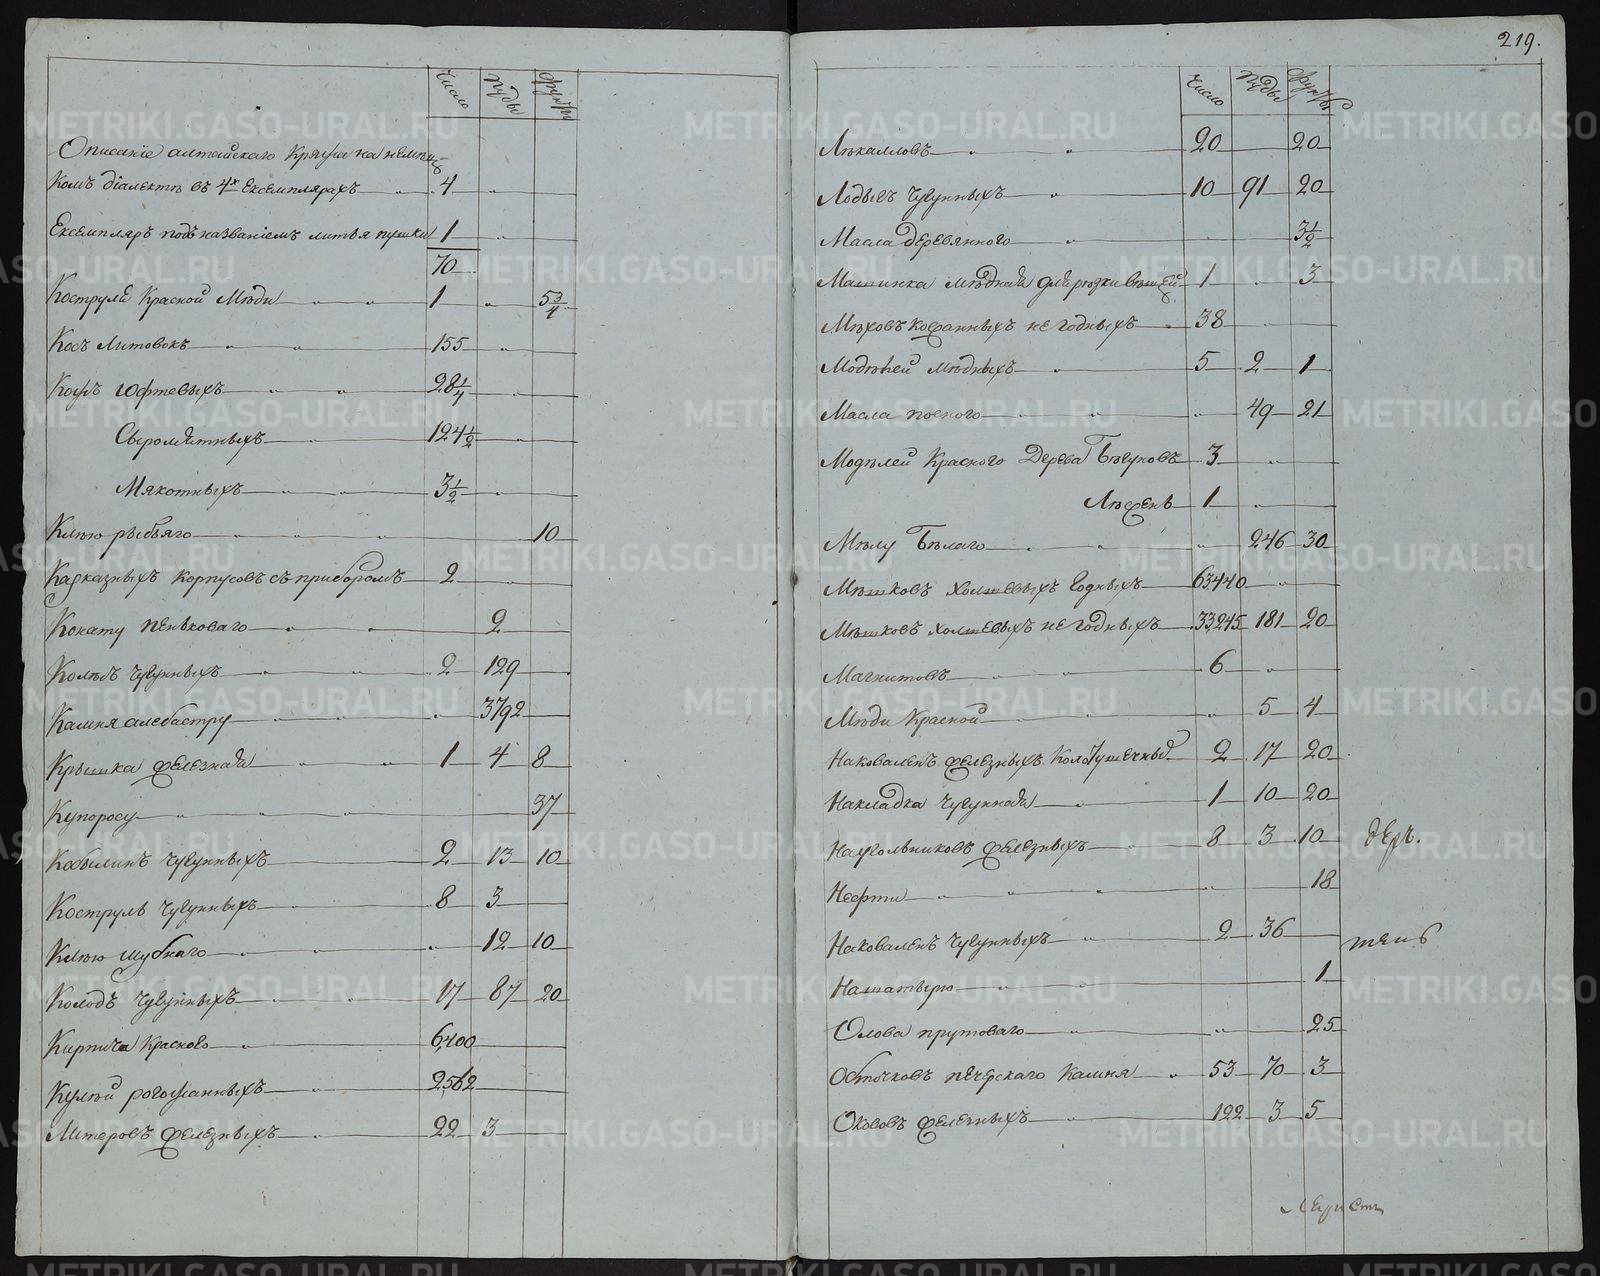 Число Пуды Фунты
Описанiе алтайскаго Кряжа на немец-
комъ дiалекте въ 4х Екземплярахъ 4
Екземпляръ подъ названiемъ литья пушки 1
70
Кострули Красной Меди 1 5 3/4
Косъ Литовокъ 155
Кожъ Юфтевыхъ 28 1/4
Сыромятныхъ 124 1/2
Мякотныхъ 3 1/2
Клею рыбьяго 10
Карказныхъ Корпусовъ съ приборомъ 2
Конату пеньковаго 2
Колесъ чугунныхъ 2 129
Камня алебастру 3792
Крышка железная 1 4 8
Купоросу 37
Кобылинъ чугунныхъ 2 13 10
Кострулъ чугунныхъ 8 3
Клею шубнаго 12 10
Колодъ чугунныхъ 17 87 20
Кирпича Красного 6,400
Кулей рогожанныхъ 2562
Литеровъ железныхъ 22 3
219.
Число Пуды Фунты
Лекаловъ 20 20
Лодыгъ чугунныхъ 10 91 20
Масла деревянного 3 1/2
Машинка медная для резки вещей 1 3
Меховъ кожанныхъ негодныхъ 38
Моделей медныхъ 5 2 1
Масла посного 49 21
Моделей Красного Дерева Бегуновъ 3
Лежень 1
Мелу Белаго 246 30
Мешковъ Холшевыхъ годныхъ 63440
Мешковъ холшевыхъ негодныхъ 33,245 181 20
Магнитовъ 6
Меди Красной 5 4
Наковаленъ железныхъ Колотушечныя 2 17 20
Накладка чугунная 1 10 20
Наугольниковъ железныхъ 8 3 10 деръ.
Нефти 18
Наковаленъ чугунныхъ 2 36
Нашатырю 1
Олова прутоваго 25
Обточковъ печерскаго Камня 53 70 3
Оковъ железныхъ 122 3 5
METRIKI.GASO-URAL.RU